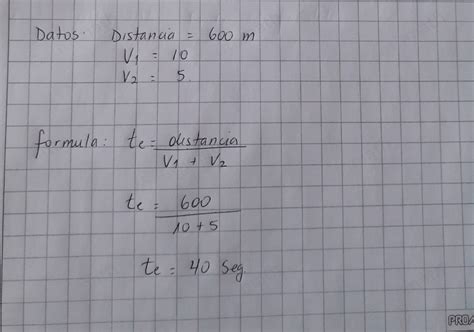 Datos: Distancia = 600 m
V1 = 10
V2 = 5
formula: te = distancia
V1 + V2
te = 600
10 + 5
te = 40 seg